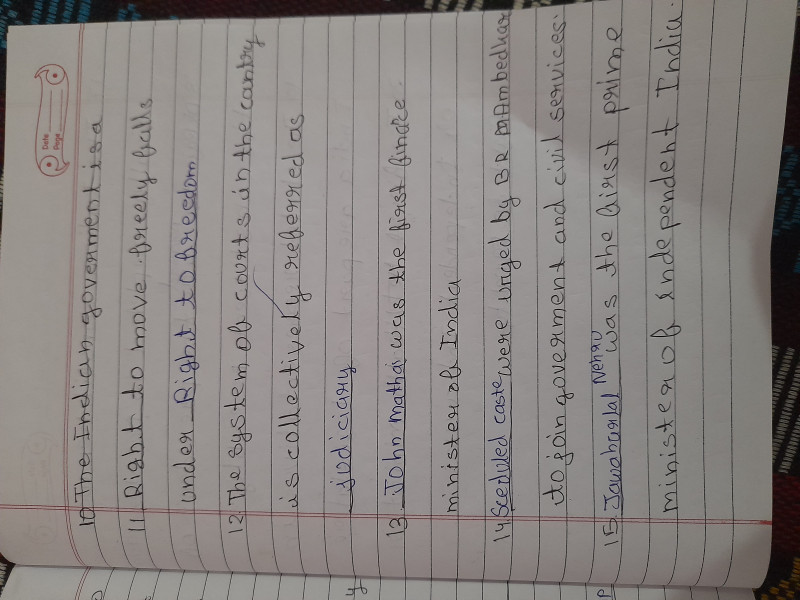 Date
Page
10 The Indian government is a
11. Right to move freely falls
under Right to freedom
12. The system of courts in the cantry
is collectively referred as
judiciary
13. John mathai was the first
minister of India
14. caste were urged by BR Ambedkar
to join government and civil services.
15. Jawaharlal Nehru was the first prime
minister of independent India.
y